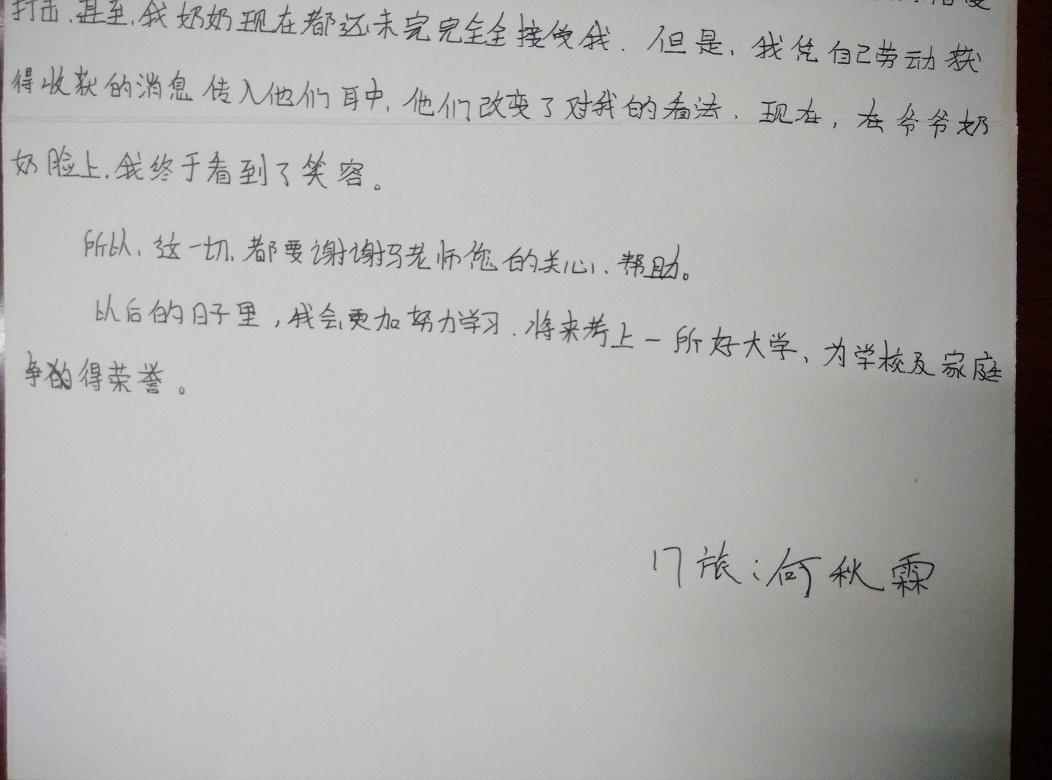 打击,甚至,我奶奶现在都还未完完全全接受我.但是,我凭自己劳动获
得收获的消息传入他们耳中,他们改变了对我的看法.现在,在爷爷奶
奶脸上,我终于看到了笑容。
所以,这一切,都要谢谢马老师您的关心、帮助。
以后的日子里,我会更加努力学习.将来考上一所好大学、为学校及家庭
争得荣誉。
17旅:何秋霖